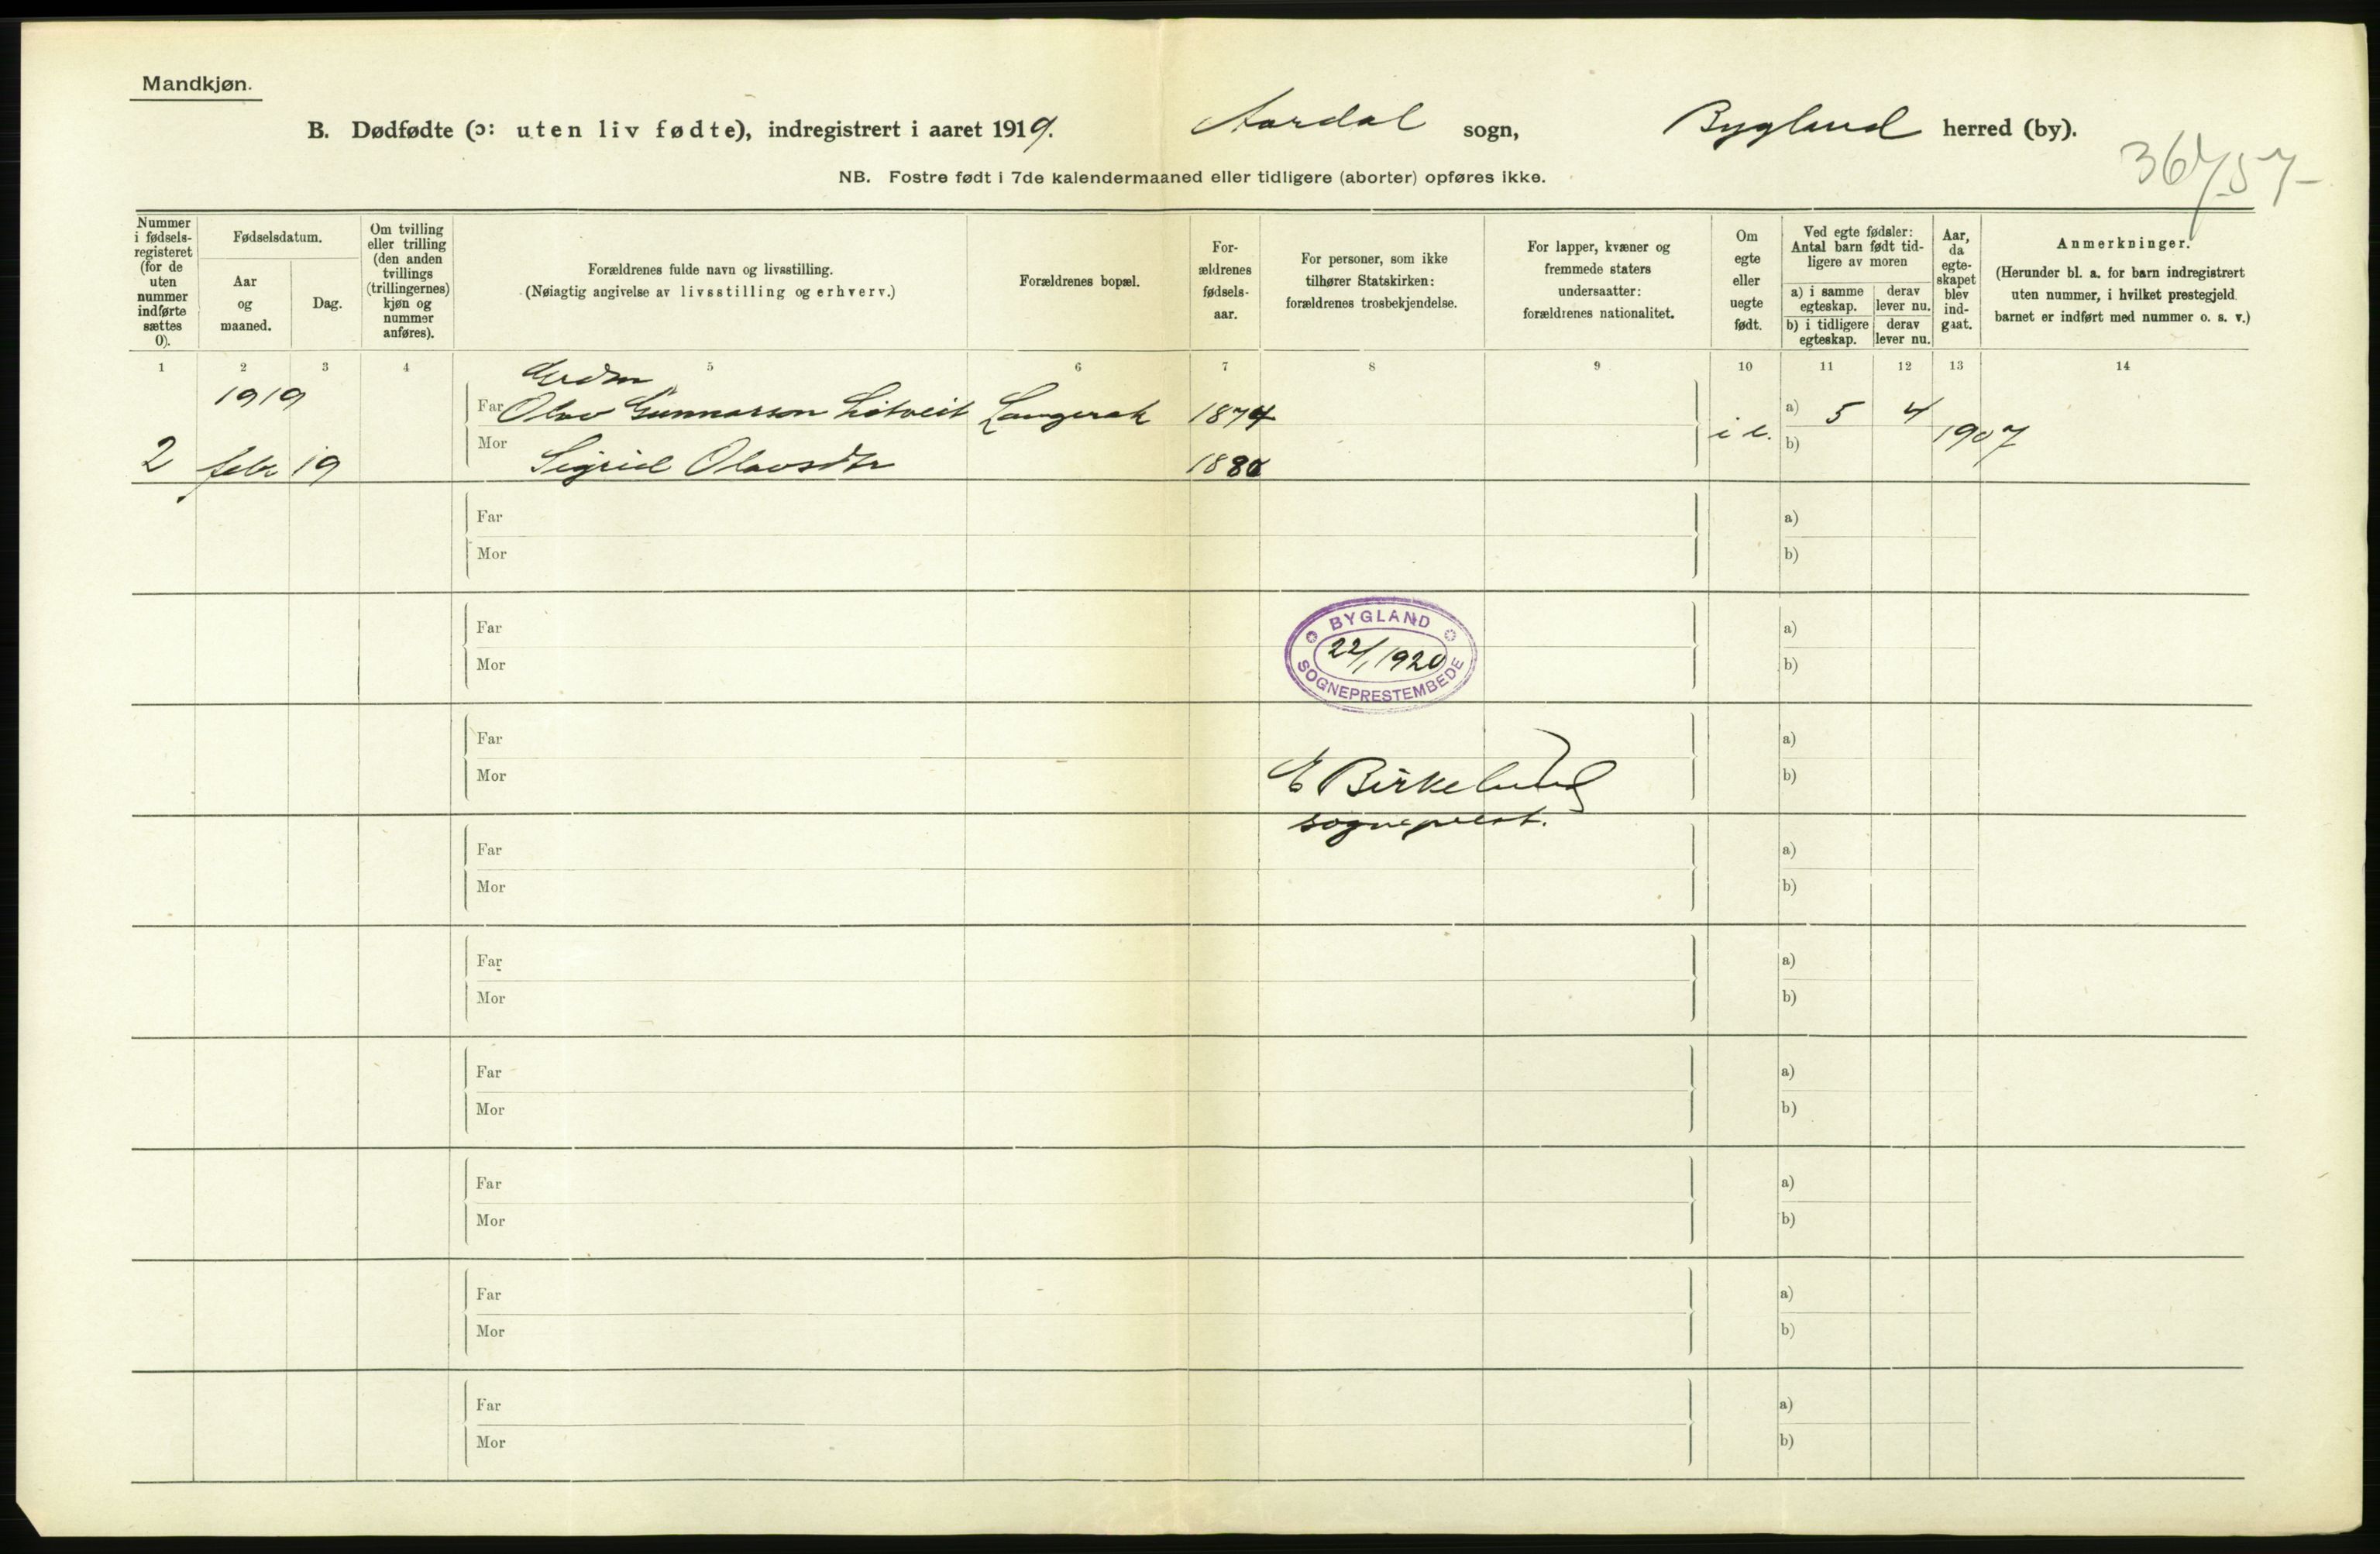 Mandkjøn.
B. Dødfødte (ɔ: uten liv fødte), indregistrert i aaret 1919. Aardal sogn, Bygland herred (by).
NB. Fostre født i 7de kalendermaaned eller tidligere (aborter) opføres ikke.
Nummer i fødsels-registeret (for de uten nummer indførte sættes 0).
Fødselsdatum.
Aar og maaned.
Dag.
Om tvilling eller trilling (den anden tvillings (trillingernes) kjøn og nummer anføres).
Forældrenes fulde navn og livsstilling.
(Nøiagtig angivelse av livsstilling og erhverv.)
Forældrenes bopæl.
For-ældrenes fødsels-aar.
For personer, som ikke tilhører Statskirken: forældrenes trosbekjendelse.
For lapper, kvæner og fremmede staters undersaatter: forældrenes nationalitet.
Om egte eller uegte født.
Ved egte fødsler: Antal barn født tid-ligere av moren
a) i samme egteskap. derav lever nu.
b) i tidligere egteskap. derav lever nu.
Aar, da egte-skapet blev ind-gaat.
Anmerkninger.
(Herunder bl. a. for barn indregistrert uten nummer, i hvilket prestegjeld barnet er indført med nummer o. s. v.)
1 2 3 4 5 6 7 8 9 10 11 12 13 14
1919
Far Olav Gunnarson Langerak 1874 a) 5 4
2 febr 19 Mor Sigrid Olavsdtr 1880 i e. b) 1907
Far a)
Mor b)
Far a)
Mor b)
BYGLAND
22/1 1920
SOGNEPRESTEMBEDE
Far a)
Mor b)
E Birkelund
sogneprest.
Far a)
Mor b)
Far a)
Mor b)
Far a)
Mor b)
Far a)
Mor b)
Far a)
Mor b)
Far a)
Mor b)